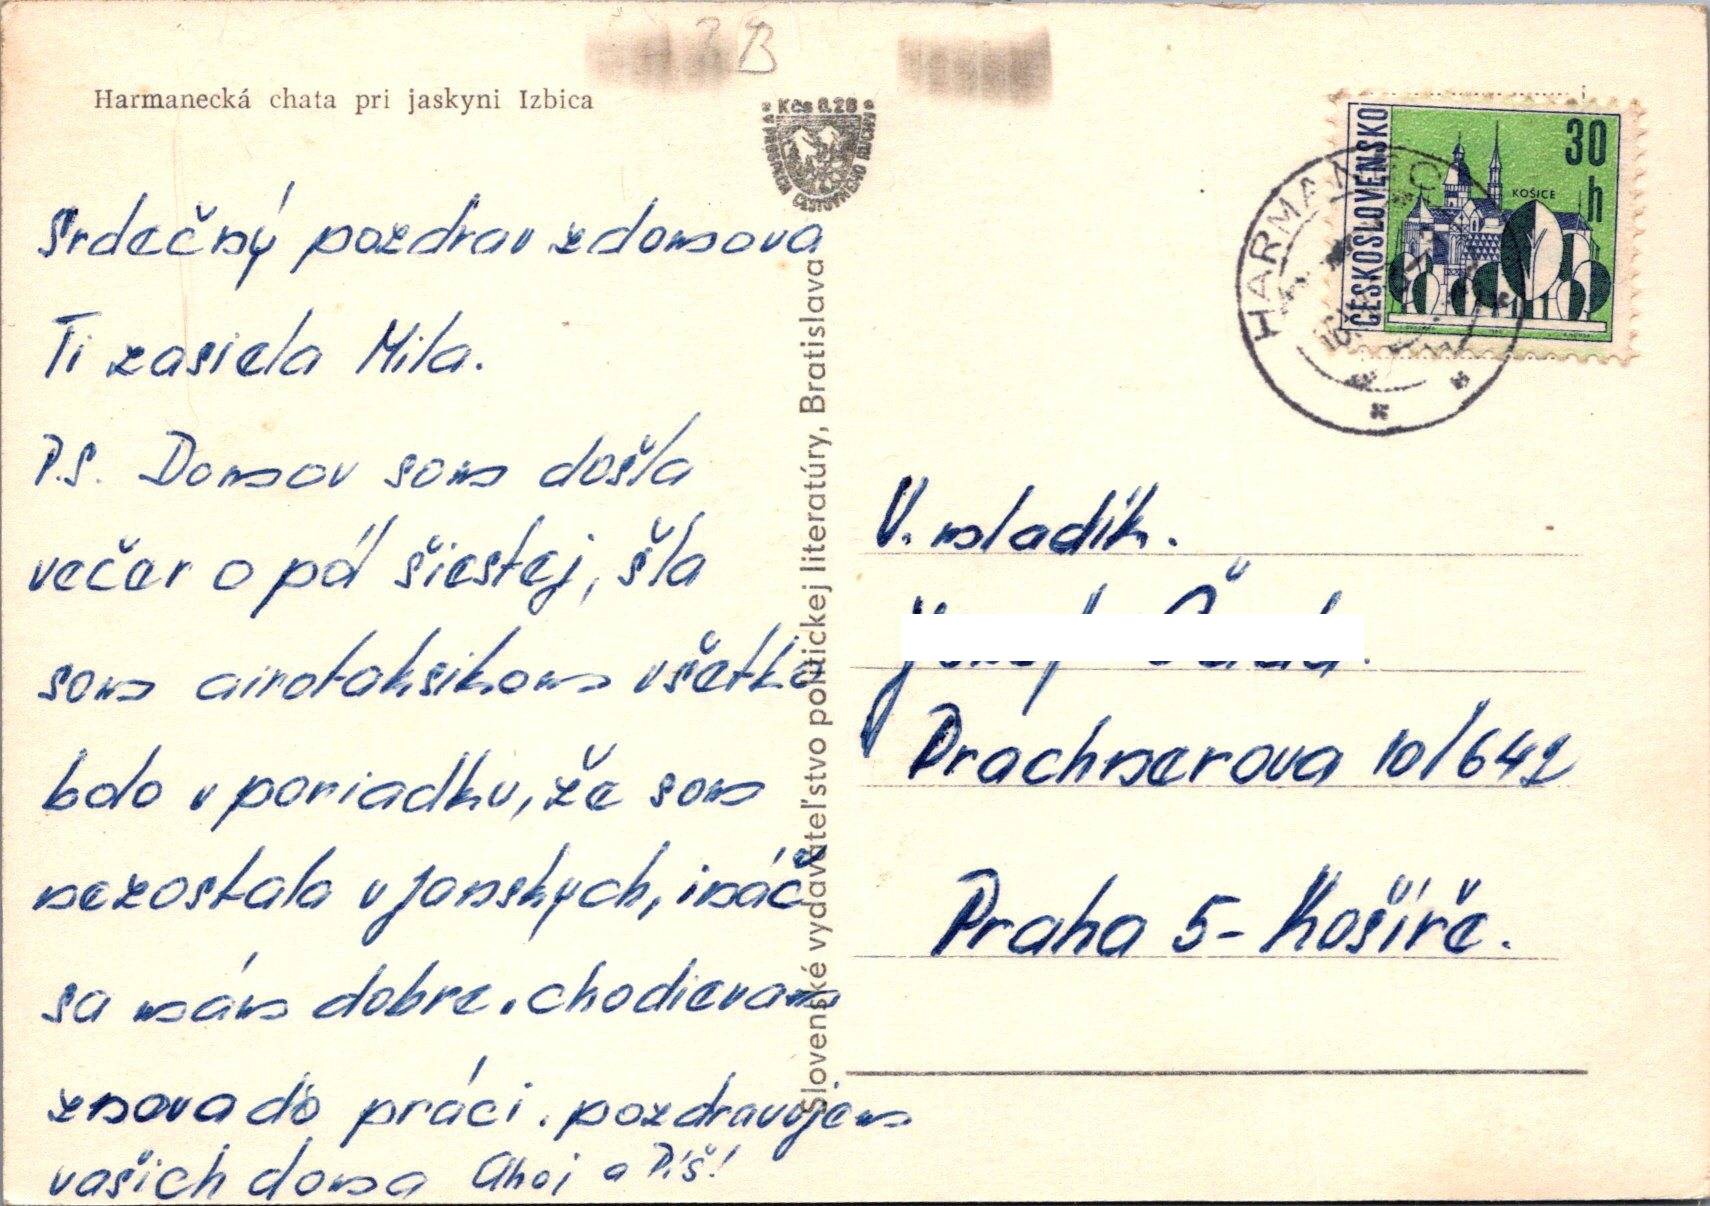 Harmanecká chata pri jaskyni Izbica
Kčs 0.20
Srdečný pozdrav z domova
Ti zasiela Mila.
P.S. Domov som došla
večer o pól šiestej, šla
som airotaksikom všetko
bolo v poriadku, že som
nezostala v Janských, ináč
sa mám dobre. chodievam
znova do práci. pozdravujem
vašich doma Ahoj a Píš!
Slovenské vydavateľstvo politickej literatúry, Bratislava
ČESKOSLOVENSKO
30
h
KOŠICE
HARMANEC
V. mladík.
Prachnerova 10/642
Praha 5 - Košíře.